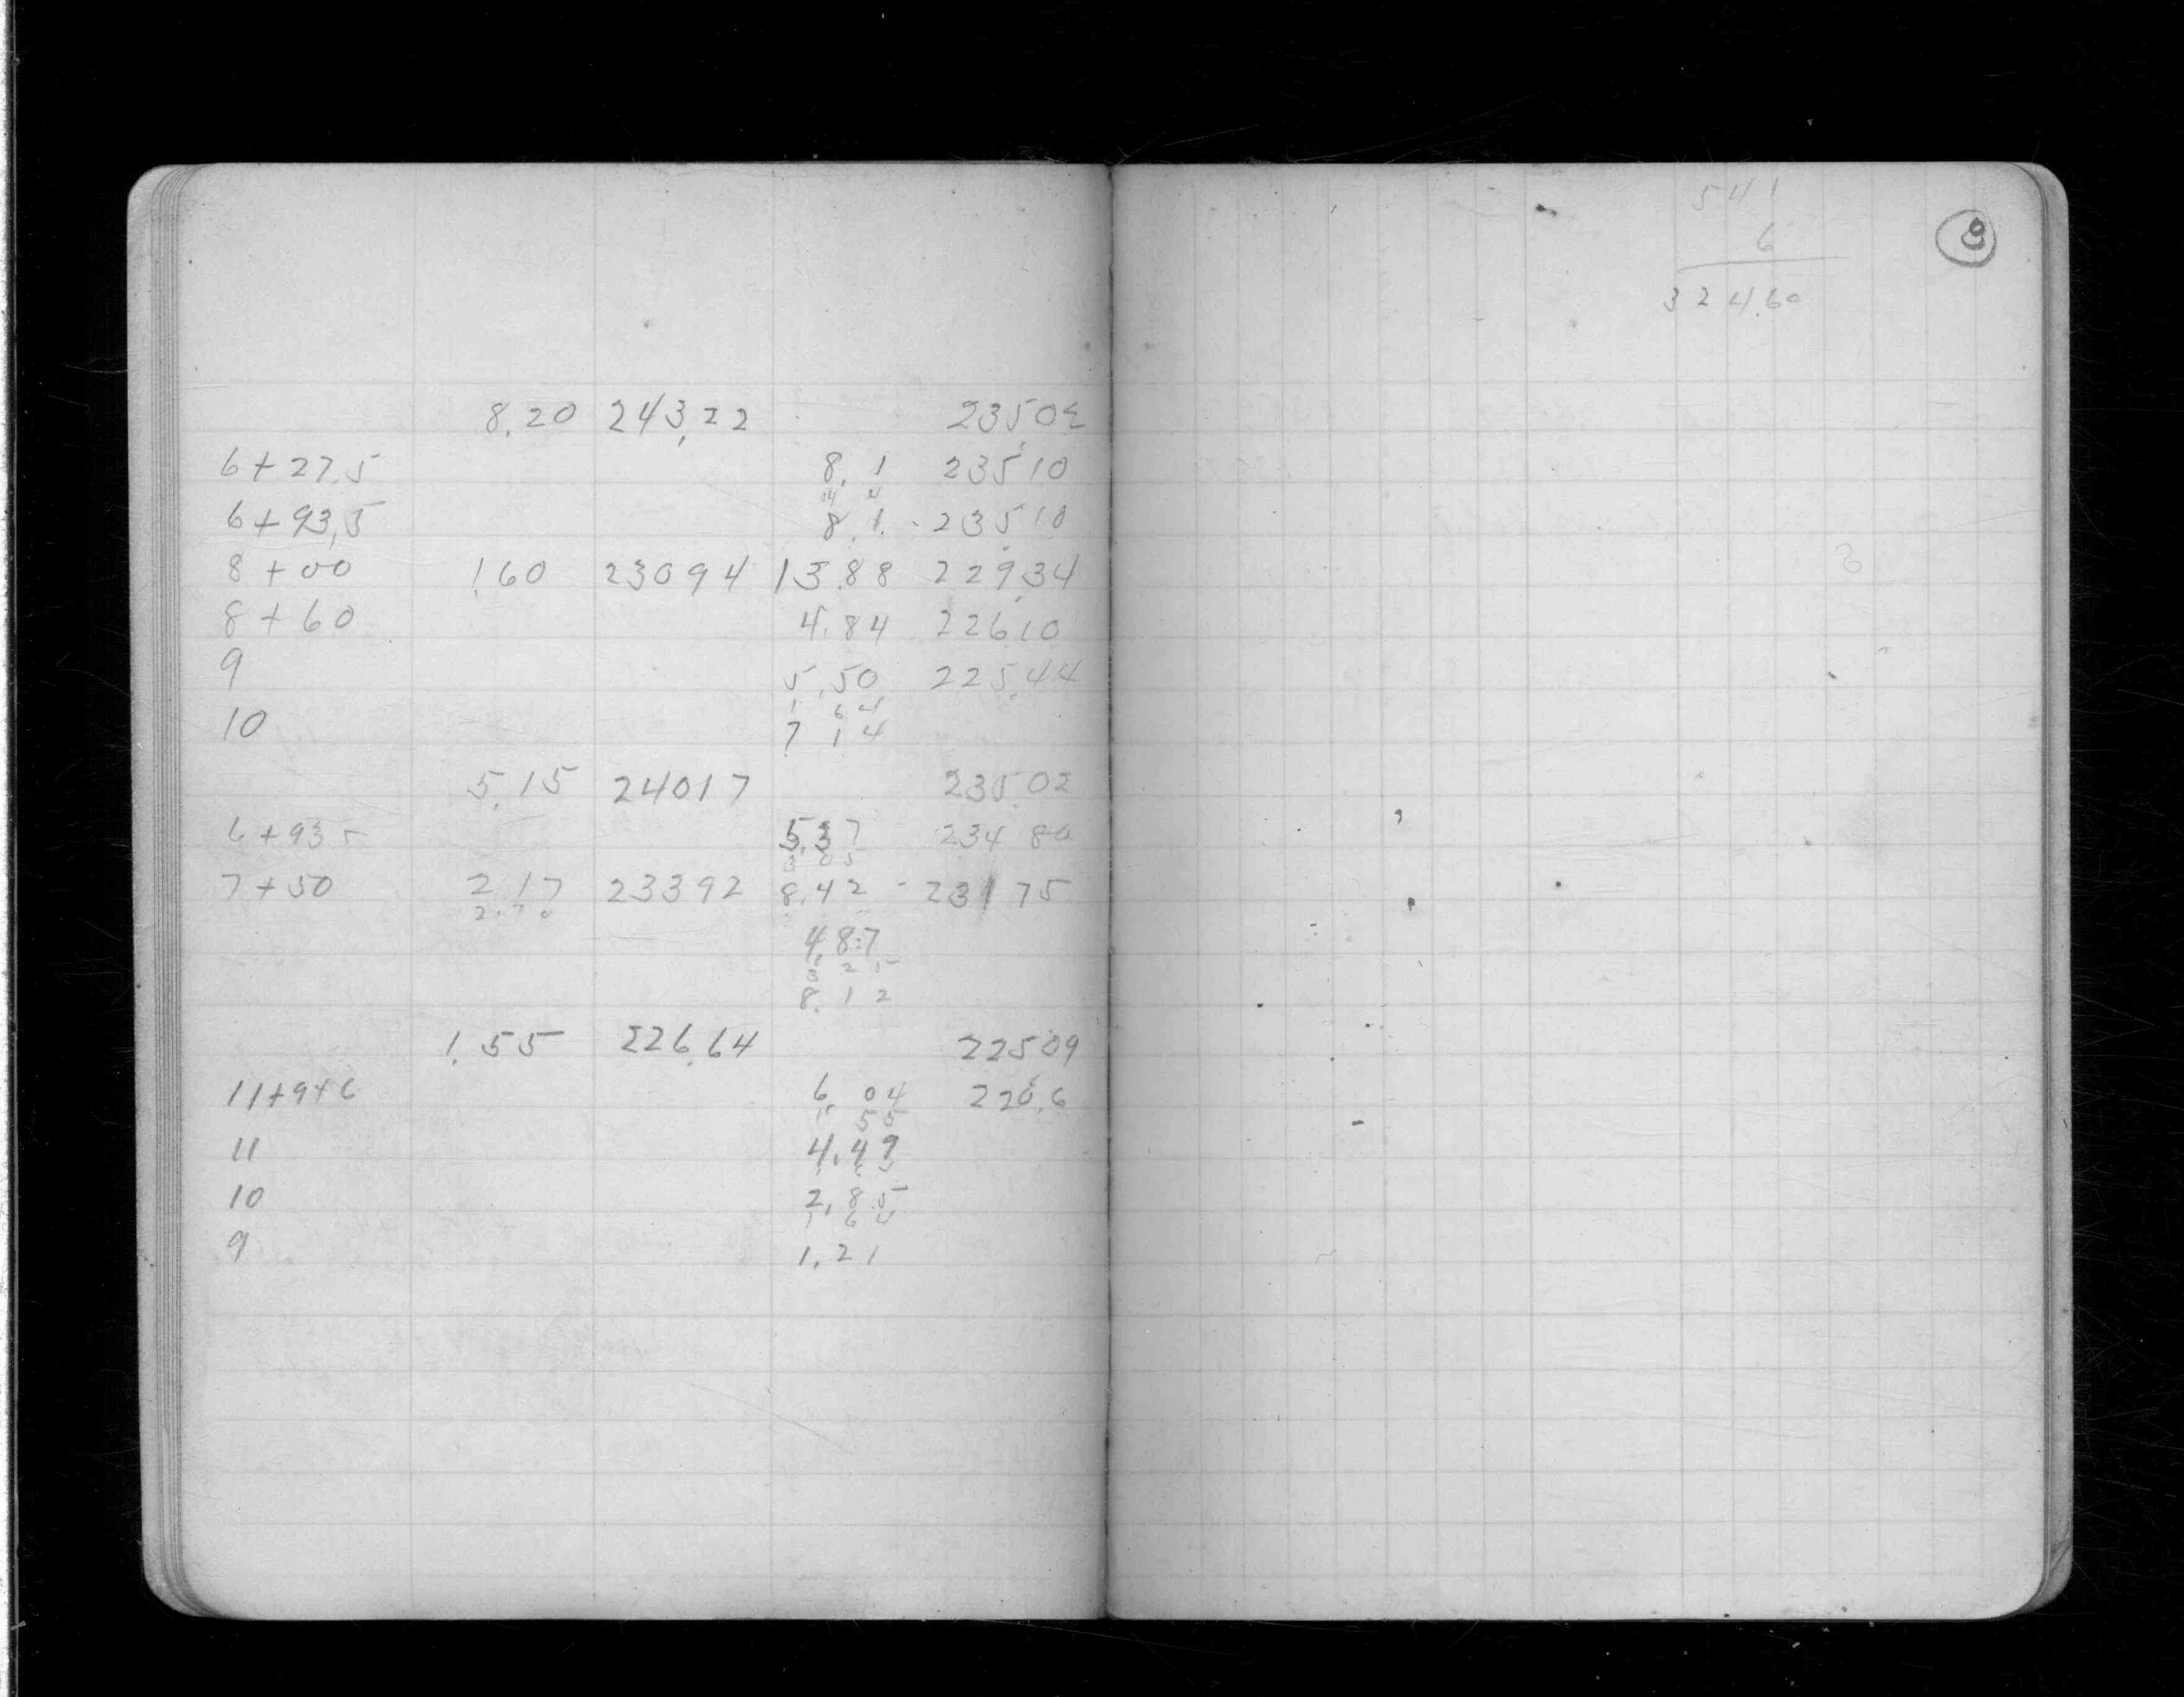 8.20 243.22 235.02
6+27.5 8.1 23510
14 4
6+93.5 8.1 23510
8+00 1.60 23094 13.88 229.34
8+60 4.84 226.10
9 5.50 225.44
1 64
10 7 14
5.15 24017 235.02
6+935 5.37 234 80
3 05
7+50 2 17 23392 8.42 23175
2.70
4.87
3 25
8.12
1.55 226.64 22509
11+9+6 6.04 220.6
1 55
11 4.49
10 2.85
1 64
9 1.21
541
6
324.60